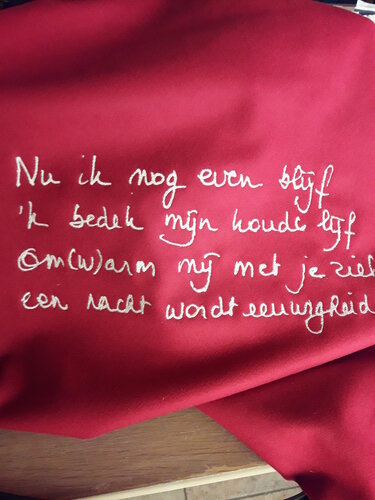 Nu ik nog even blijf
'k bedek mijn koude lijf
Om(w)arm mij met je ziel
een nacht wordt eeuwigheid